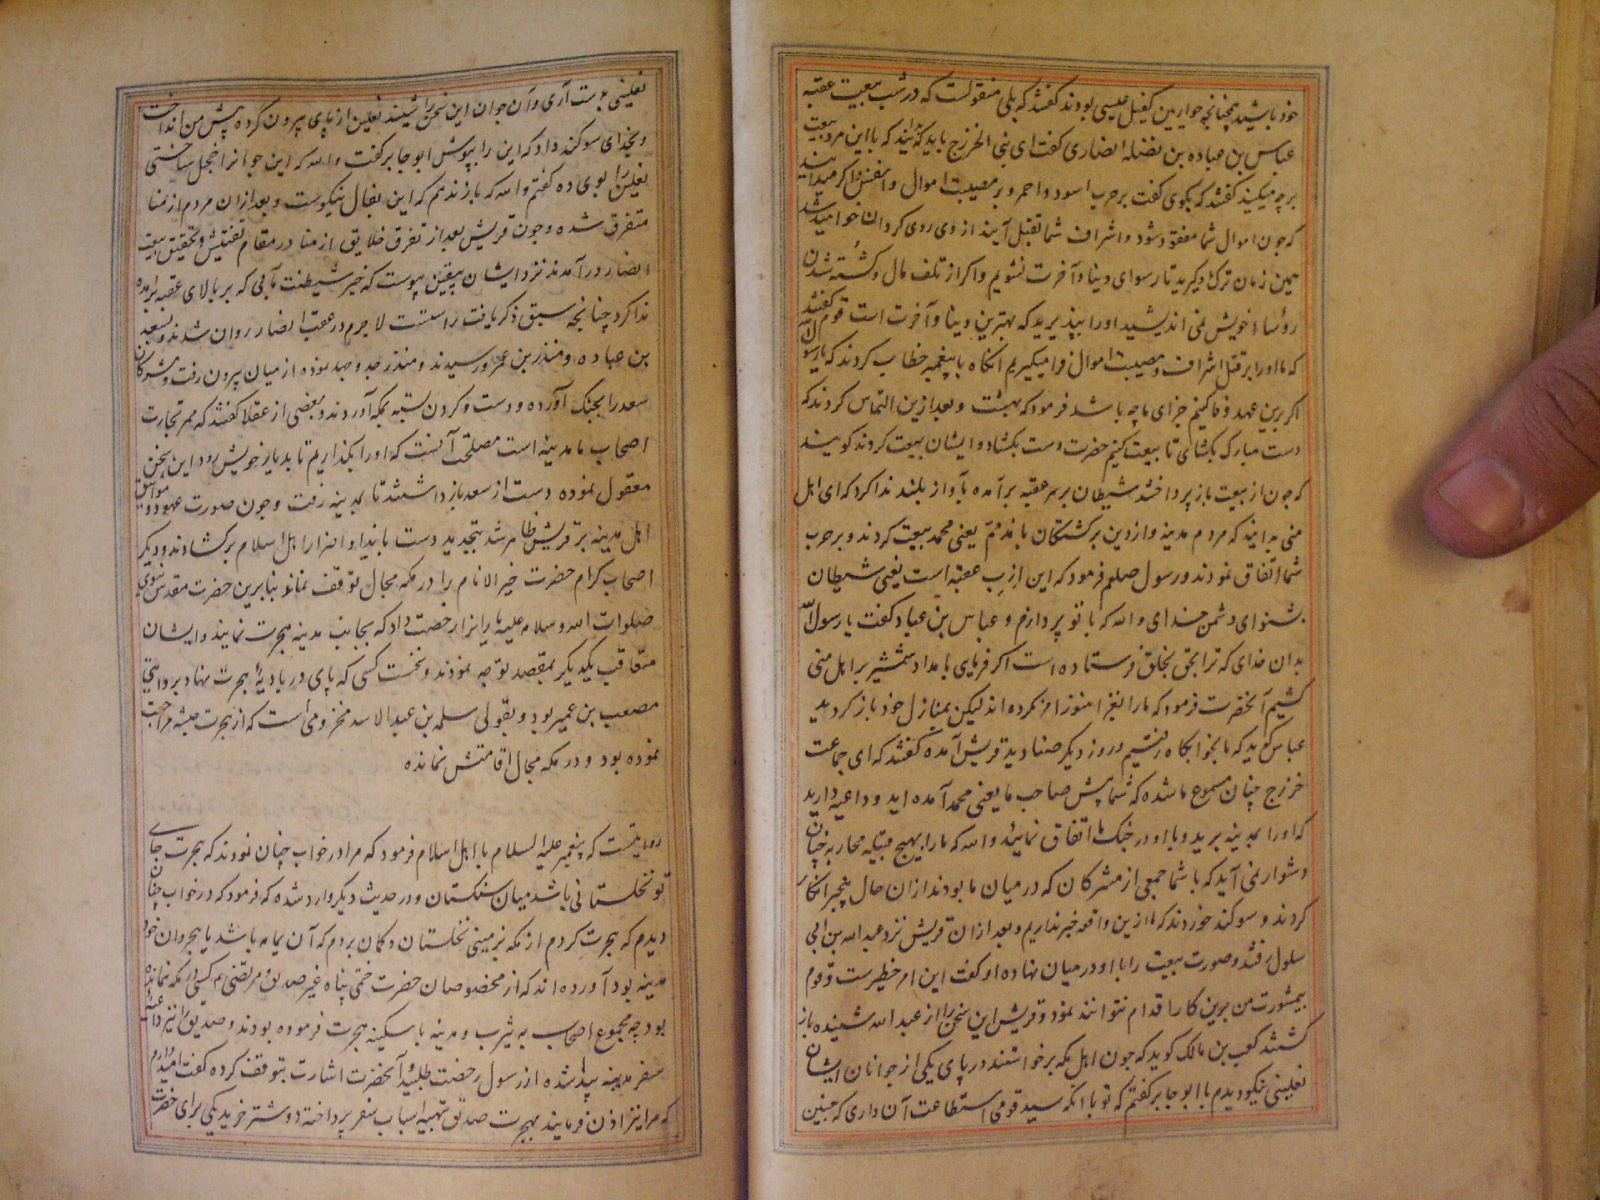 خود باشید چنانچه حواریین کفیل عیسی بودند کفتند که بلی منقولست که در شب بیعت عقبه
عباس بن عباده بن نضله انصاری کفت ای بنی الخزرج باید که بدانید که با این مرد بیعت
بر چه میکنید کفتند که بکوی کفت بر حرب اسود و احمر و بر مصیبت اموال و انفس و اکر میدانید
که چون اموال شما مفقود شود و اشراف شما بقتل آیند از وی روی کردان خواهید شد
همین زمان ترک او کیرید تا رسوای دنیا و آخرت نشویم و اکر از تلف مال و کشته شدن
رؤسای خویش نمی اندیشید او را بپذیرید که بهترین دنیا و آخرت است قوم کفتند
که ما او را بر قتل اشراف و مصیبت اموال فرا میکیریم آنکاه با پیغمبر خطاب کردند که یا رسول الله
اکر بدین عهد وفا کنیم جزای ما چه باشد فرمود که بهشت و بعد ازین التماس کردند که
دست مبارک بکشای تا بیعت کنیم حضرت دست بکشاد و ایشان بیعت کردند کویند
که چون از بیعت باز پرداختند شیطان بر سر عقبه بر آمده بآواز بلند ندا کرد که ای اهل
منی بدانید که مردم مدینه و از دین برکشتکان با مذمم یعنی محمد بیعت کردند و بر حرب
شما اتفاق نمودند و رسول صلعم فرمود که این ازب عقبه است یعنی شیطان
بشنو ای دشمن خدای والله که با تو پردازم و عباس بن عباده کفت یا رسول الله
بدان خدای که ترا بحق بخلق فرستاده است اکر فرمای بامداد شمشیر بر اهل منی
کشیم آنحضرت فرمود که ما را بغزا هنوز امر نکرده اند لیکن بمنازل خود باز کردید
عباس کوید که ما بخوابکاه رفتیم و روز دیکر صنادید قریش آمده کفتند که ای جماعت
خزرج چنان مسموع ما شده که شما پیش صاحب ما یعنی محمد آمده اید و داعیه دارید
که او را بمدینه برید و با او در جنک ما اتفاق نمایید والله که ما را با هیچ قبیله محاربه چنان
دشوار نمی آید که با شما جمعی از مشرکان که در میان ما بودند از آن حال بیخبر انکار
کردند و سوکند خوردند که ما ازین واقعه خبر نداریم و بعد از آن قریش نزد عبدالله بن ابی
سلول رفتند و صورت بیعت را با او در میان نهاده او کفت این امر خطیرست و قوم
بیمشورت من برین کار اقدام نتوانند نمود و قریش این سخن را از عبدالله شنیده باز
کشتند کعب بن مالک کوید که چون اهل مکه برخواستند در پای یکی از جوانان ایشان
نعلینی نیکو دیدم با ابو جابر کفتم که تو با آنکه سید قومی استطاعت آن داری که چنین
نعلینی بدست آری و آن جوان این سخن را شنید نعلین از پای بیرون کرده پیش من انداخت
و بخدای سوکند داد که این را بپوش ابو جابر کفت والله که این جوانرا خجل ساختی
نعلین را بوی ده کفتم والله که باز ندهم که این بفال نیکوست و بعد از آن مردم از منا
متفرق شده و چون قریش بعد از تفرق خلایق از منا در مقام تفتیش و تحقیق بیعت
انصار در آمدند نزد ایشان بیقین پیوست که خبر شیطنت مآبی که بر بالای عقبه بر آمده
ندا کرد چنانچه سبق ذکر یافت راستست لاجرم در عقب انصار روان شدند و بسعد
بن عباده و منذر بن عمرو رسیدند و منذر جد و جهد نموده از میان بیرون رفت و مشرکان
سعد را بچنک آورده و دست و کردن بسته بمکه آوردند و بعضی از عقلا کفتند که ممر تجارت
اصحاب ما مدینه است مصلحت آنست که او را بکذاریم تا بدیار خویش رود این سخن
معقول نموده دست از سعد باز داشتند تا بمدینه رفت و چون صورت عهود و مواثیق
اهل مدینه بر قریش ظاهر شد بتجدید دست بایذا و اضرار اهل اسلام برکشادند و دیکر
اصحاب کرام حضرت خیر الانام را در مکه مجال توقف نماند بنابرین حضرت مقدس نبوی
صلوات الله و سلامه علیه یارانرا رخصت داد که بجانب مدینه هجرت نمایند و ایشان
متعاقب یکدیکر بمقصد توجه نمودند و نخست کسی که پای در بادیه هجرت نهاد بروایتی
مصعب بن عمیر بود و بقولی سلمه بن عبد الاسد مخزومی است که از هجرت حبشه مراجعت
نموده بود و در مکه مجال اقامتش نمانده
روایتست که پیغمبر علیه السلام با اهل اسلام فرمود که مرا در خواب چنان نمودند که هجرت جای
تو نخلستانی باشد میان سنکستان و در حدیث دیکر وارد شده که فرمود که در خواب چنان
دیدم که هجرت کردم از مکه بزمینی نخلستان و کمان بردم که آن یمامه باشد یا هجر و آن خود
مدینه بود آورده اند که از مخصوصان حضرت ختمی پناه غیر صدیق و مرتضی هم کسی در مکه نمانده
بود چه مجموع اصحاب به یثرب و مدینه با سکینه هجرت فرموده بودند و صدیق را نیز داعیه
سفر مدینه پیدا شده از رسول رخصت طلبید و آنحضرت اشارت بتوقف کرده کفت امید دارم
که مرا نیز اذن فرمایند بهجرت صدیق بتهیه اسباب سفر پرداخته دو شتر خرید یکی برای حضرت